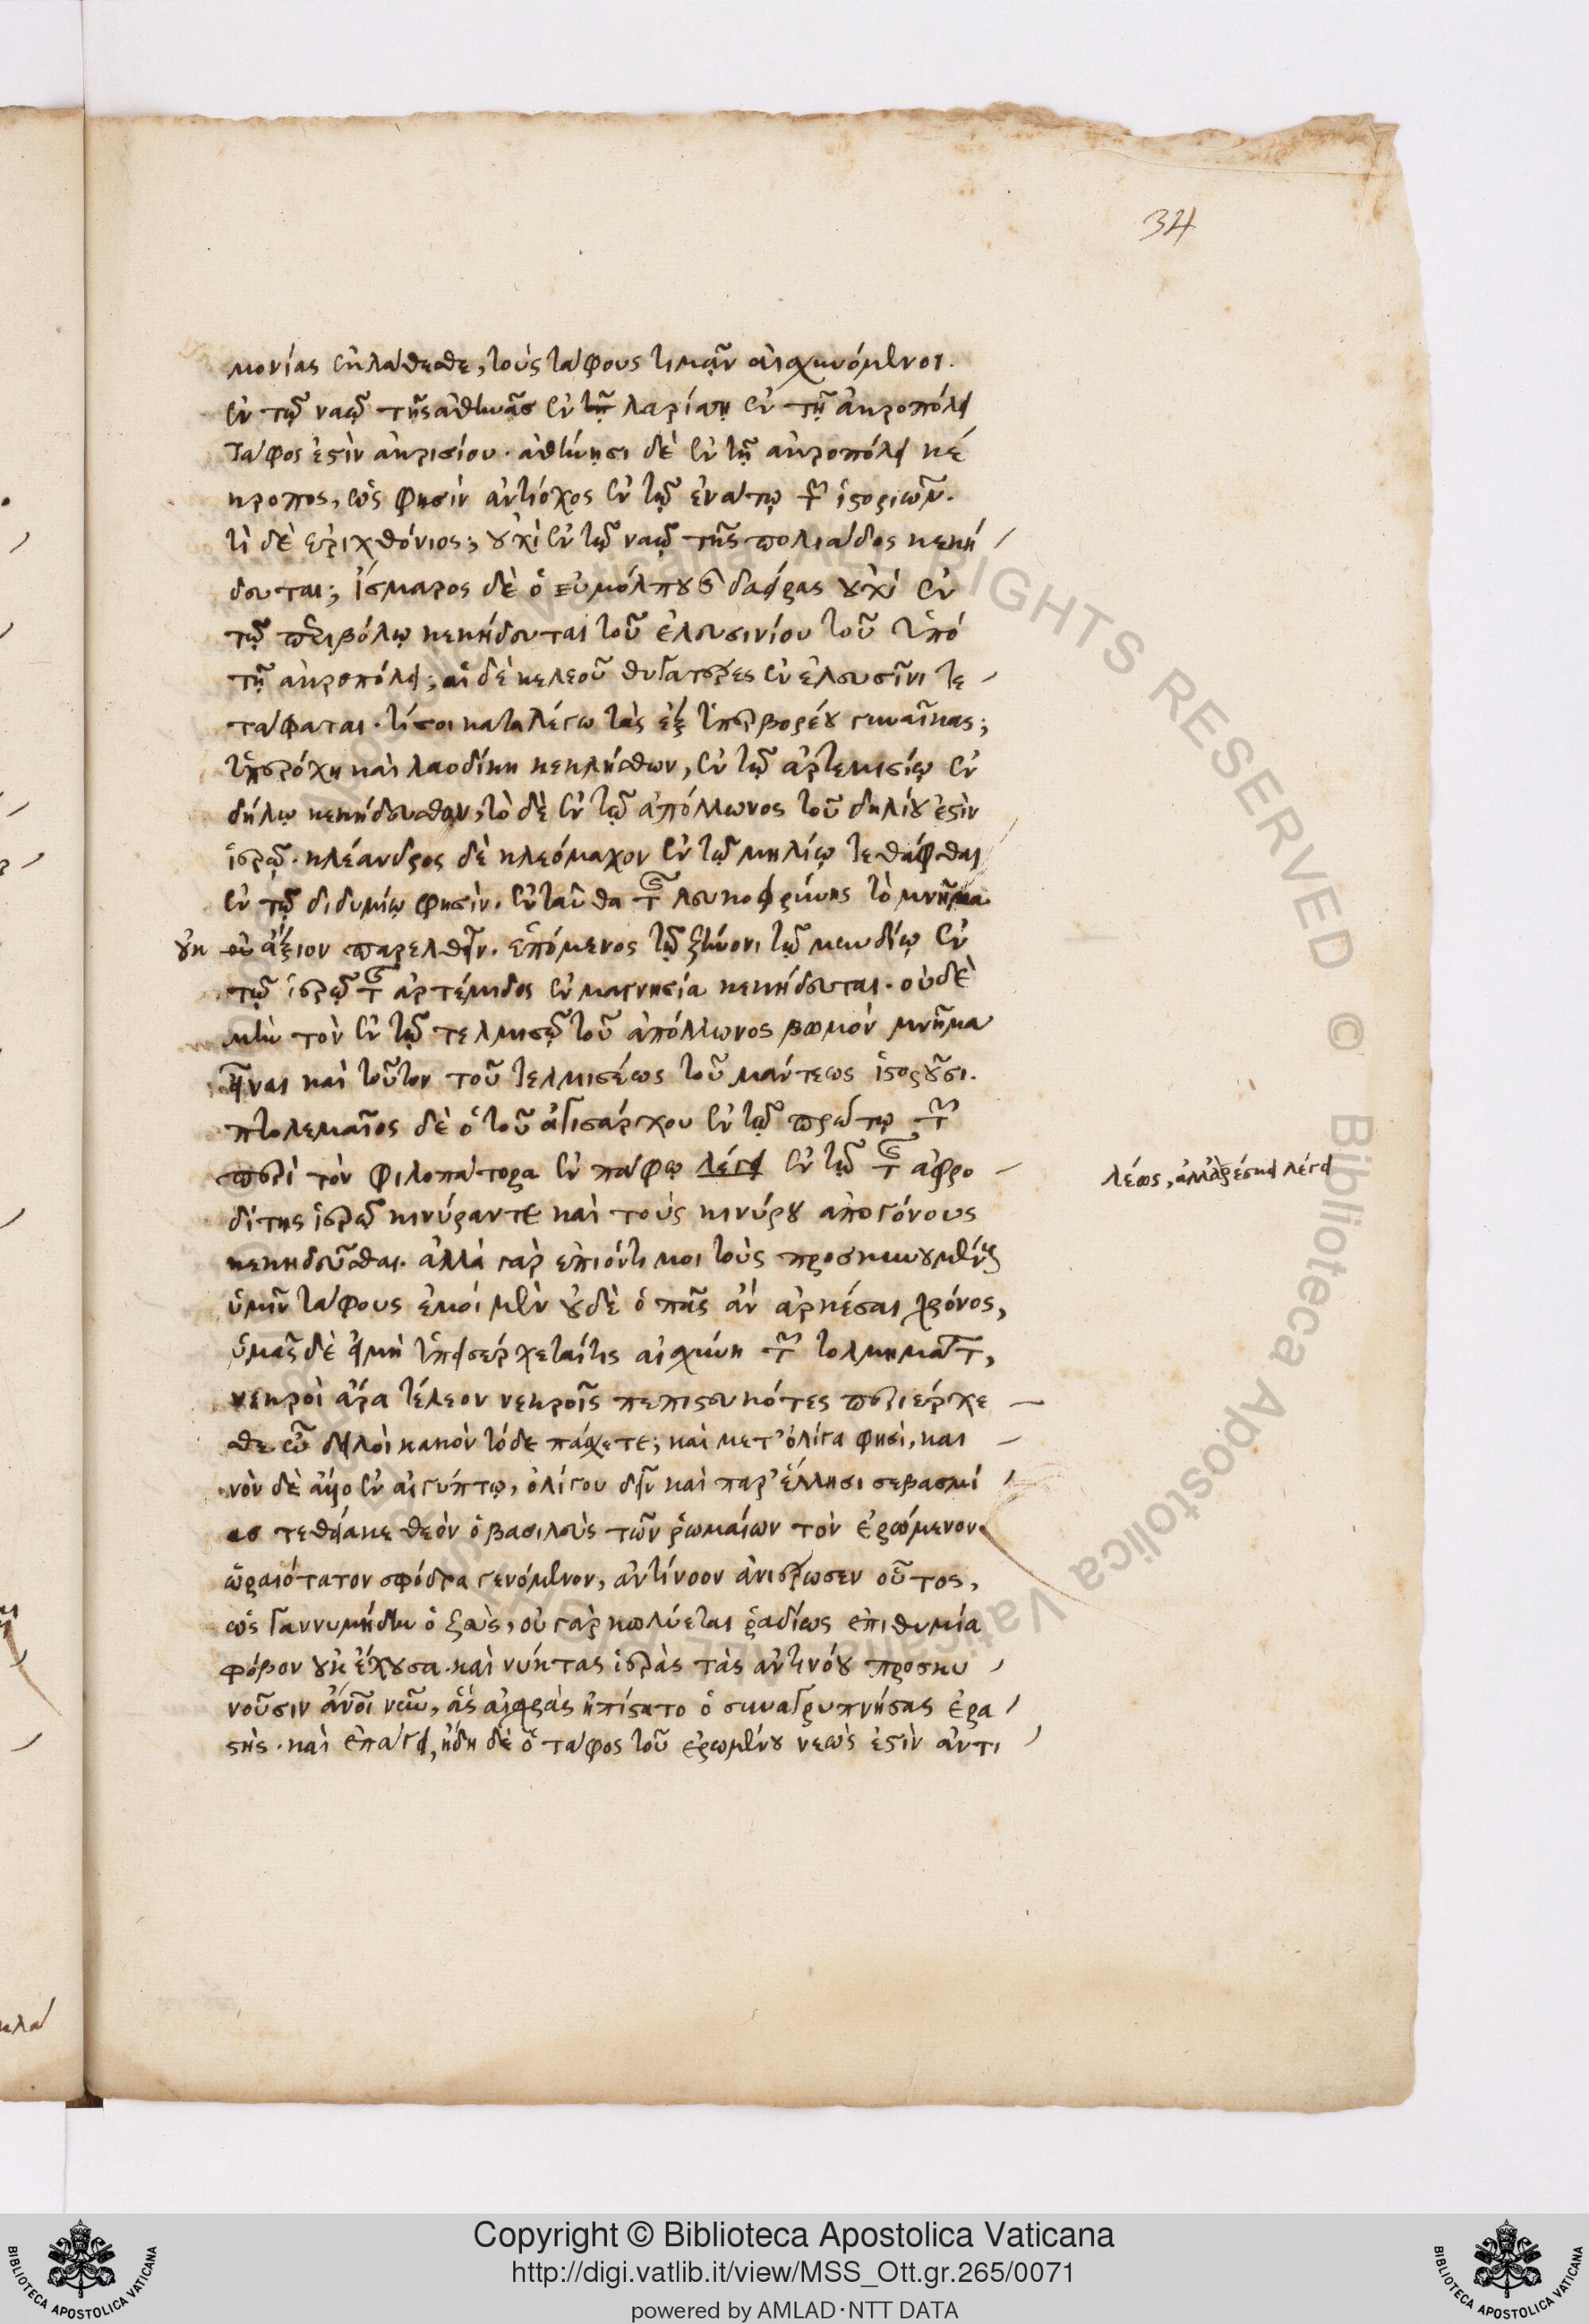 34
μονίας ἐκλάθεσθε, τοὺς τάφους τιμᾶν αἰσχυνόμενοι.
ἐν τῷ ναῷ τῆς ἀθηνᾶσ ἐν τῇ λαρίσῃ ἐν τῇ ἀκροπόλει
τάφος ἐστὶν ἀκρισίου. ἀθήνησι δὲ ἐν τῇ ἀκροπόλει κέ
κροπος, ὥς φησιν ἀντίοχος ἐν τῷ ἐνάτῳ τῶν ἱστοριῶν.
τί δὲ ἐριχθόνιος; οὐχὶ ἐν τῷ ναῷ τῆς πολιάδος κεκή
δευται; ἴσμαρος δὲ ὁ εὐμόλπου καὶ δαείρας οὐχὶ ἐν
τῷ περιβόλῳ κεκήδευται τοῦ ἐλευσινίου τοῦ ὑπό
τῇ ἀκροπόλει; αἱ δὲ κελεοῦ θυγατέρες ἐν ἐλευσῖνι τε
τάφαται. τί σοι καταλέγω τὰς ἐξ ὑπερβορέου γυναῖκας;
ὑπερόχη καὶ λαοδίκη κεκλήσθων, ἐν τῷ ἀρτεμισίῳ ἐν
δήλῳ κεκήδευσθον, τὸ δὲ ἐν τῷ ἀπόλλωνος τοῦ δηλίου ἐστὶν
ἱερῷ. κλέανδρος δὲ κλεόμαχον ἐν τῷ μηλίῳ τεθάφθαι
ἐν τῷ διδυμίῳ φησίν. ἐνταῦθα τῆς λευκοφρύνης τὸ μνῆμα
οὐκ οὐ ἄξιον παρελθεῖν. ἑπόμενος τῷ ζήνονι τῷ μενδίῳ ἐν
τῷ ἱερῷ τῆς ἀρτέμιδος ἐν μαγνησία κεκήδευται. οὐδὲ
μὴν τὸν ἐν τῷ τελμισῷ τοῦ ἀπόλλωνος βωμὸν μνῆμα
εἶναι καὶ τοῦτον τοῦ τελμισέως τοῦ μάντεως ἱστοροῦσι.
πτολεμαῖος δὲ ὁ τοῦ ἀγισάρχου ἐν τῷ πρώτῳ τῶν
περὶ τὸν φιλοπάτορα ἐν πάφῳ λέγει ἐν τῷ τῆς ἀφρο
λέως, ἀλλ' ἀρέσκει λέγει
δίτης ἱερῷ κινύραν τε καὶ τοὺς κινύρου ἀπογόνους
κεκηδεῦσθαι. ἀλλὰ γὰρ ἐπιόντι μοι τοὺς προσκυνουμένους
ὑμῖν τάφους ἐμοί μὲν οὐδὲ ὁ πᾶς ἂν ἀρκέσαι χρόνος,
ὑμᾶς δὲ εἰ μὴ ὑπεισέρχεταί τις αἰσχύνη τῶν τολμημάτων,
νεκροὶ ἄρα τέλεον νεκροῖς πεπιστευκότες περιέρχε
σθε ὦ δειλοὶ κακὸν τόδε πάσχετε; καὶ μετ' ὀλίγα φησὶ, και
νὸν δὲ ἄλλο ἐν αἰγύπτῳ, ὀλίγου δεῖν καὶ παρ' ἕλλησι σεβασμί
ασ τεθείακε θεὸν ὁ βασιλεὺς τῶν ῥωμαίων τὸν ἐρώμενον
ὡραιότατον σφόδρα γενόμενον, ἀντίνοον ἀνιέρωσεν οὕτος,
ὡς γαννυμήδην ὁ ζεὺς, οὐ γὰρ κωλύεται ῥαδίως ἐπιθυμία
φόβον οὐκ ἔχουσα. καὶ νύκτας ἱερὰς τὰς ἀντινόου προσκυ
νοῦσιν ἄνθρωποι νῦν, ἃς αἰσχρὰς ἠπίστατο ὁ συναγρυπνήσας ἐρα
στής. καὶ ἐπάγει, ἤδη δὲ ὁ τάφος τοῦ ἐρωμένου νεώς ἐστὶν ἀντι
Copyright © Biblioteca Apostolica Vaticana
http://digi.vatlib.it/view/MSS_Ott.gr.265/0071
powered by AMLAD·NTT DATA